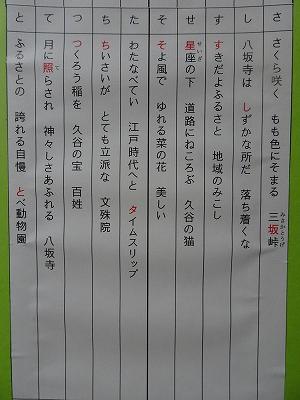 さ さくら咲く もも色にそまる 三坂峠
みさかとうげ
し 八坂寺は しずかな所だ 落ち着くな
す すきだよふるさと 地域のみこし
せ 星座の下 道路にねころぶ 久谷の猫
せいざ
そ そよ風で ゆれる菜の花 美しい
た わたなべてい 江戸時代へと タイムスリップ
ち ちいさいが とても立派な 文殊院
つ つくろう稲を 久谷の宝 百姓
て 月に照らされ 神々しさあふれる 八坂寺
て
と ふるさとの 誇れる自慢 とべ動物園